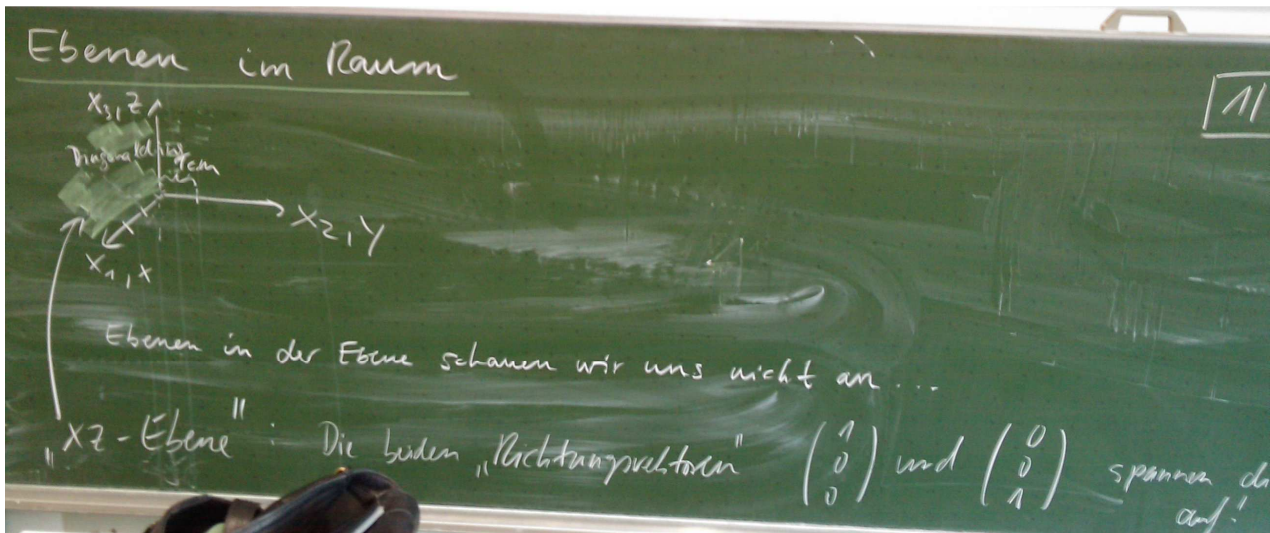 Ebenen im Raum
11
X₃, Z
1cm
X₂, Y
X₁, X
Ebenen in der Ebene schauen wir uns nicht an ...
„XZ-Ebene“: Die beiden „Richtungsvektoren“ (1 0 0) und (0 0 1) spannen
auf!